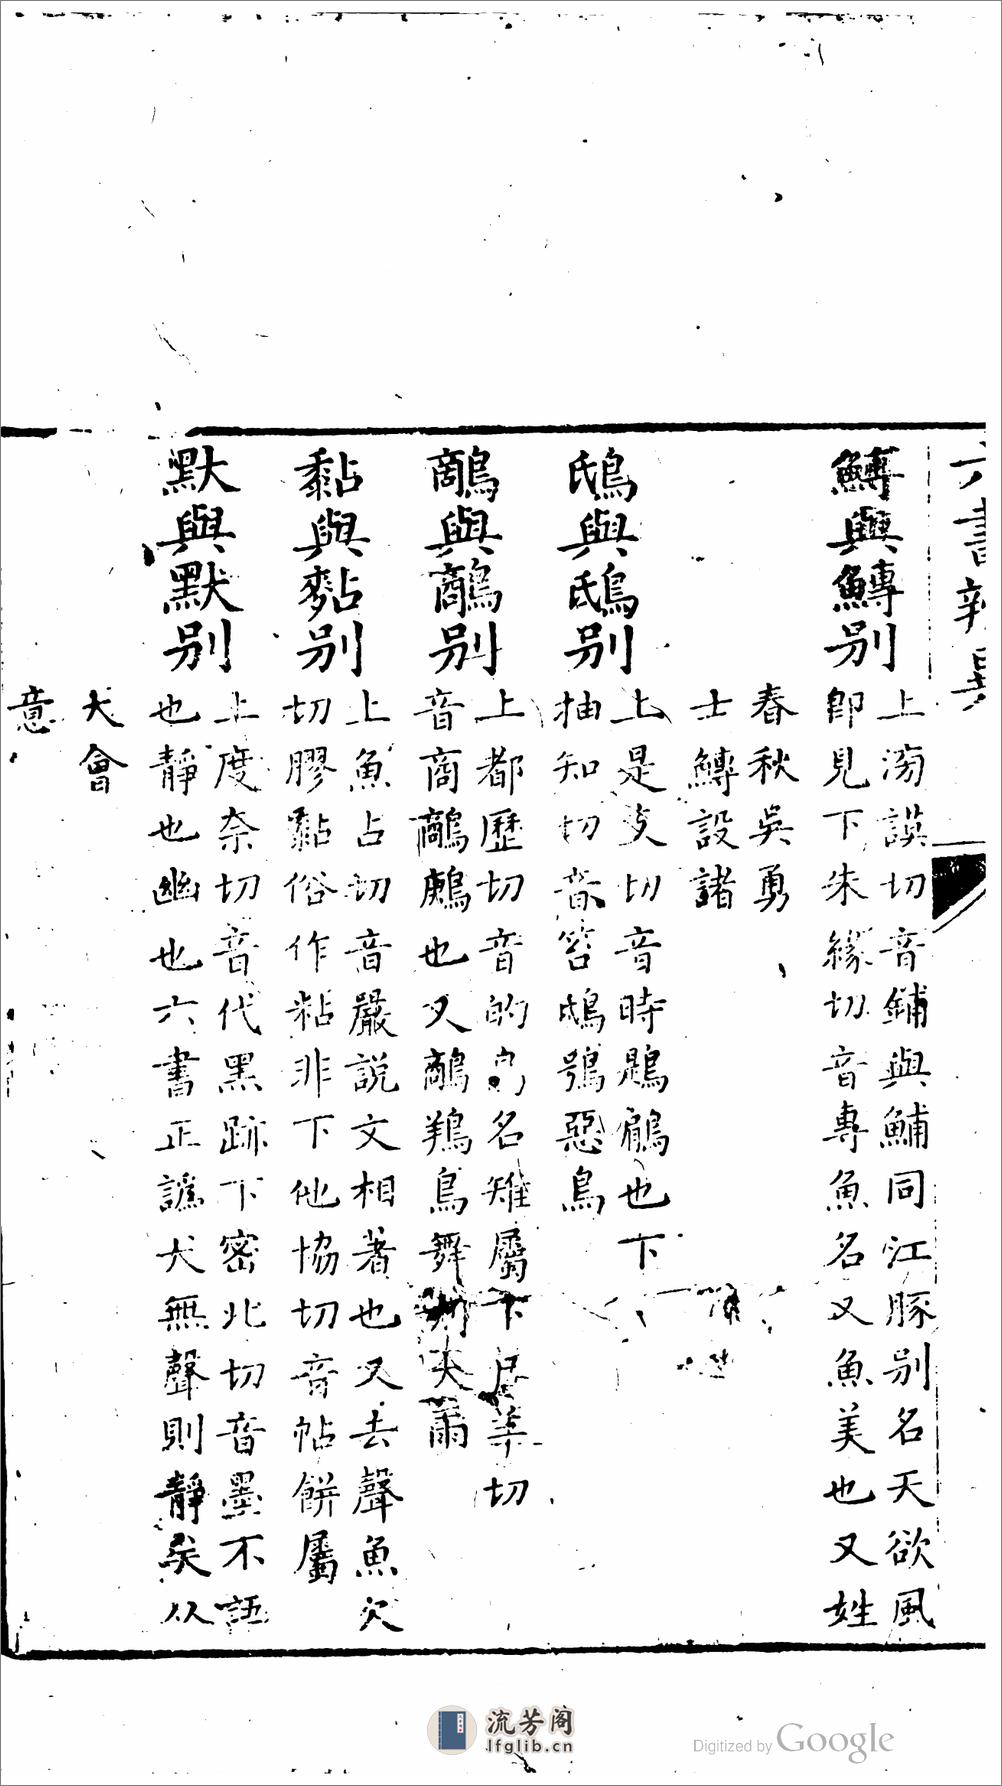 六書辨異
鱄與鱄别
上滂謨切音鋪與鯆同江豚别名天欲風
卽見下朱緣切音專魚名又魚美也又姓
春秋吳勇
士鱄設諸
鴟與鴟别
上是支切音時鶗鴂也下
抽知切音笞鴟鴞惡鳥
鷸與鷸别
上都歷切音的鳥名雉屬下尸羊切
音商鷸鶊也又鷸鷸鳥舞則天雨
黏與黏别
上魚占切音嚴說文相著也又去聲魚欠
切膠黏俗作粘非下他協切音帖餅屬
默與默别
上度奈切音代黑跡下密北切音墨不語
也靜也幽也六書正譌犬無聲則靜矣从
犬會
意
流芳阁
lfglib.cn
Digitized by Google